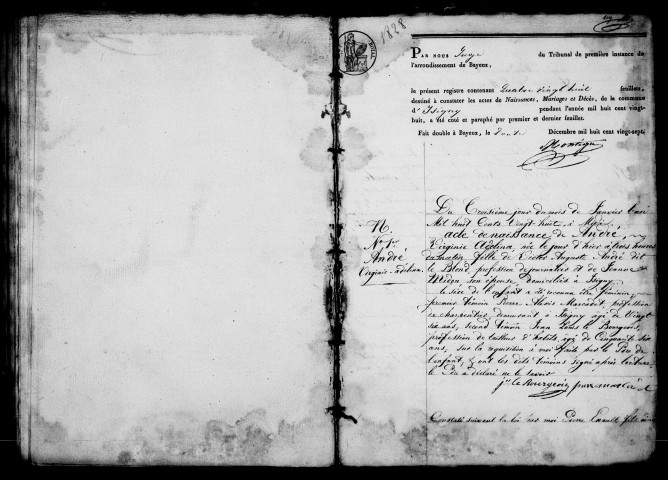 1828
ROYAL
PAR NOUS Juge du Tribunal de première instance de
l'arrondissement de Bayeux,
le présent registre contenant Quatre vingt huit feuillets,
destiné à constater les actes de Naissances, Mariages et Décès, de la commune
d'Isigny pendant l'année mil huit cent vingt-
huit, a été coté et paraphé par premier et dernier feuillet.
Fait double à Bayeux, le Décembre mil huit cent vingt-sept
Du Troisième jour du mois de Janvier L'an
Mil huit Cents Vingt huit à Midi
acte de naissance de André
Virginie née le jour d'hier à trois heures
du matin fille de Victor Auguste André dit
le Blond profession de journalier et de Jeanne
son épouse domiciliés à Isigny
le sexe de l'enfant a été reconnu être féminin
premier témoin Pierre Alexis Marcadet profession
de charpentier demeurant à Isigny âgé de Vingt
six ans, second témoin Jean Louis le Bourgeois,
profession de tailleur d'habits âgé de Cinquante six
ans, sur la réquisition à moi faite par le Père de
l'enfant, et ont les dits témoins signé après lecture
le Père a déclaré ne le savoir
N.
No 1er
André
Virginie
j. le Bourgeois
Constaté suivant la loi par moi Pierre